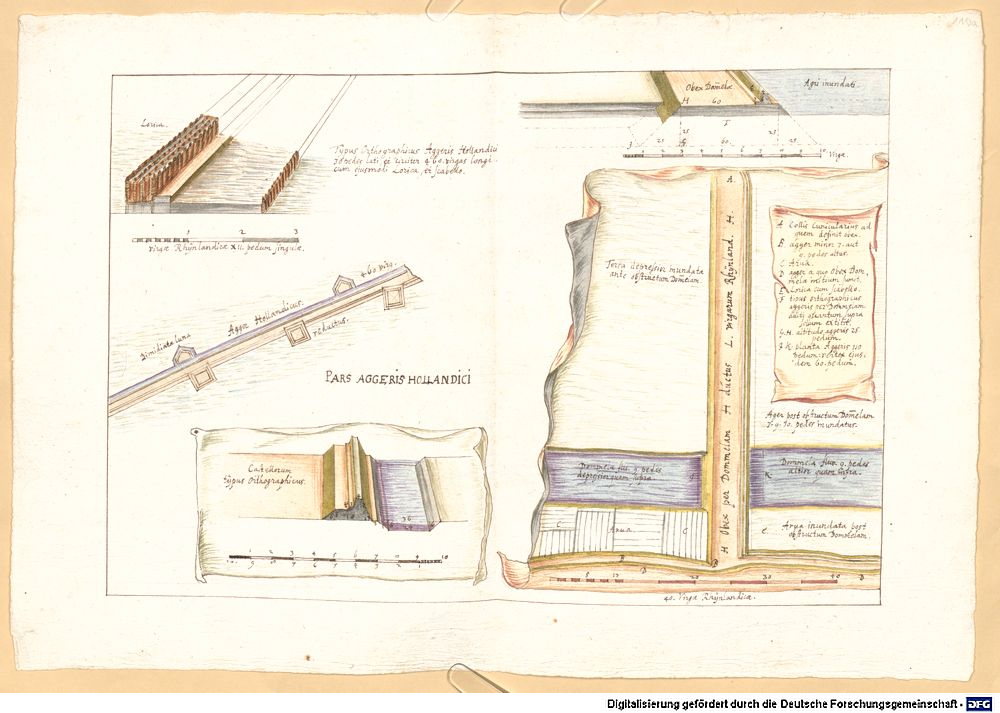 Lorica.
Typus Orthographicus Aggeris Hollandici
30 pedes lati et circiter 460 virgas longi
cum ejusmodi Lorica, et scabello.
1 2 3
virgæ Rhÿnlandicæ XII. pedum singulæ.
460 virg.
Agger Hollandicus.
reductus.
Dimidiata luna
PARS AGGERIS HOLLANDICI
Castellorum
typus Orthographicus.
36
24
1 2 3 4 5 6 7 8 9 10
Obex Domelæ
H 60
Agri inundati
I
25 25
60
Virgæ
A.
H Obex per Dommelam H ductus L. virgarum Rhÿnland. H.
Terra depressior inundata
ante obstructum Domelam.
A Collis Cunicularius ad
quem definit obex.
B agger minor 7. aut
9. pedes altus.
C Arua.
D agger a quo Obex Dom,
mela initium sumit.
E Lorica cum scabello.
F tipus orthographicus
aggeris per Dommelam
ducti quantum supra
solum extitit.
G.H. altitudo aggeris 25
pedum.
I.K. planta Aggeris 110
pedum: vertex ejus,
dem 60. pedum.
Ager post obstructum Domelam
7. 9. 10. pedes inundatus.
Dommela fluv. 9. pedes
depressior quam supra.
Dommela fluv. 9. pedes
altior quam supra.
C Arua C
C. Arua inundata post
obstructum Dommelam.
B
D
5 10 20 30 40 D
40. Virgæ Rhÿnlandicæ.
Digitalisierung gefördert durch die Deutsche Forschungsgemeinschaft - DFG